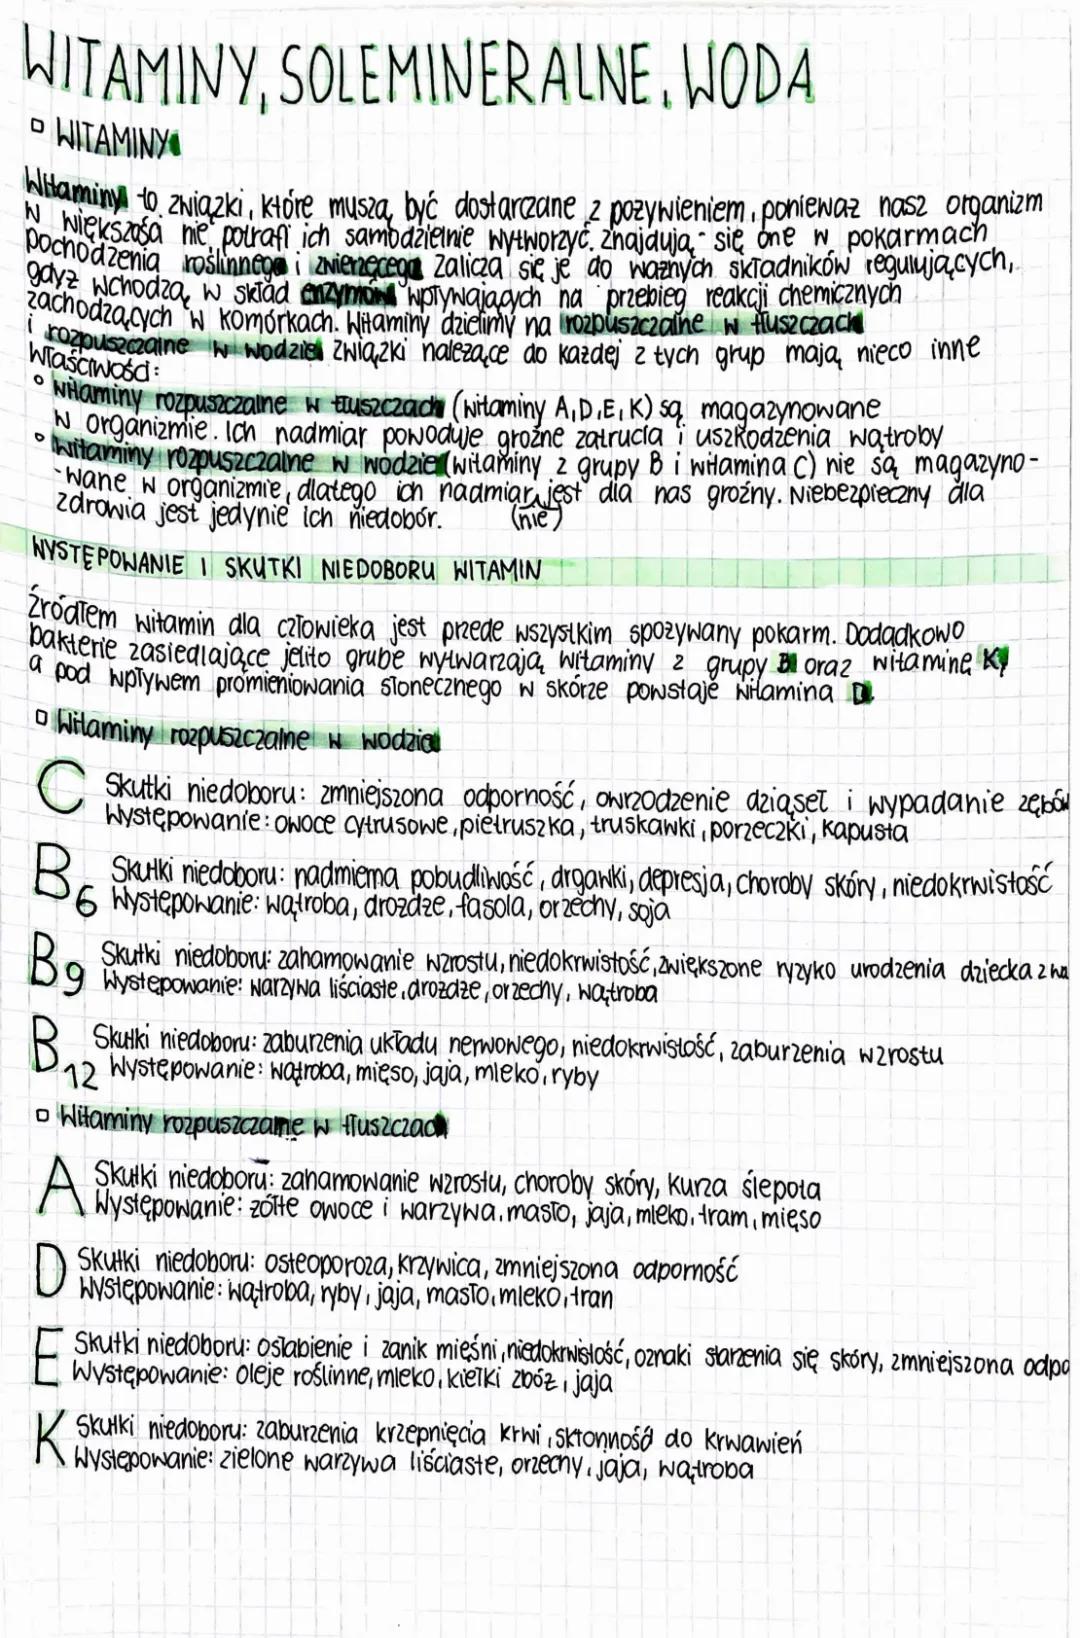 WITAMINY, SOLE MINERALNE, WODA
▫ WITAMINY
Witaminy to związki, które muszą być dostarczane z pożywieniem, ponieważ nasz organizm
w większości nie potrafi ich samodzielnie wytworzyć. Znajdują się one w pokarmach
pochodzenia roślinnego i zwierzęcego. Zalicza się je do ważnych składników regulujących,
gdyż wchodzą w skład enzymów wpływających na przebieg reakcji chemicznych
zachodzących w komórkach. Witaminy dzielimy na rozpuszczalne w tłuszczach
i rozpuszczalne w wodzie. Związki należące do każdej z tych grup mają nieco inne
właściwości:
° witaminy rozpuszczalne w tłuszczach (witaminy A,D,E,K) są magazynowane
w organizmie. Ich nadmiar powoduje groźne zatrucia i uszkodzenia wątroby
° witaminy rozpuszczalne w wodzie (witaminy z grupy B i witamina C) nie są magazyno-
-wane w organizmie, dlatego ich nadmiar jest dla nas groźny. Niebezpieczny dla
zdrowia jest jedynie ich niedobór. (nie)
WYSTĘPOWANIE I SKUTKI NIEDOBORU WITAMIN
Źródłem witamin dla człowieka jest przede wszystkim spożywany pokarm. Dodadkowo
bakterie zasiedlające jelito grube wytwarzają witaminy z grupy B oraz witaminę K,
a pod wpływem promieniowania słonecznego w skórze powstaje witamina D.
▫ Witaminy rozpuszczalne w wodzie
C Skutki niedoboru: zmniejszona odporność, owrzodzenie dziąseł i wypadanie zębów
Występowanie: owoce cytrusowe, pietruszka, truskawki, porzeczki, kapusta
B6 Skutki niedoboru: nadmierna pobudliwość, drgawki, depresja, choroby skóry, niedokrwistość
Występowanie: wątroba, drożdże, fasola, orzechy, soja
B9 Skutki niedoboru: zahamowanie wzrostu, niedokrwistość, zwiększone ryzyko urodzenia dziecka z wa
Występowanie: warzywa liściaste, drożdże, orzechy, wątroba
B12 Skutki niedoboru: zaburzenia układu nerwowego, niedokrwistość, zaburzenia wzrostu
Występowanie: wątroba, mięso, jaja, mleko, ryby
▫ Witaminy rozpuszczalne w tłuszczach
A Skutki niedoboru: zahamowanie wzrostu, choroby skóry, kurza ślepota
Występowanie: żółte owoce i warzywa, masło, jaja, mleko, tram, mięso
D Skutki niedoboru: osteoporoza, krzywica, zmniejszona odporność
Występowanie: wątroba, ryby, jaja, masło, mleko, tran
E Skutki niedoboru: osłabienie i zanik mięśni, niedokrwistość, oznaki starzenia się skóry, zmniejszona odpo
Występowanie: oleje roślinne, mleko, kiełki zbóż, jaja
K Skutki niedoboru: zaburzenia krzepnięcia krwi, skłonność do krwawień
Występowanie: zielone warzywa liściaste, orzechy, jaja, wątroba